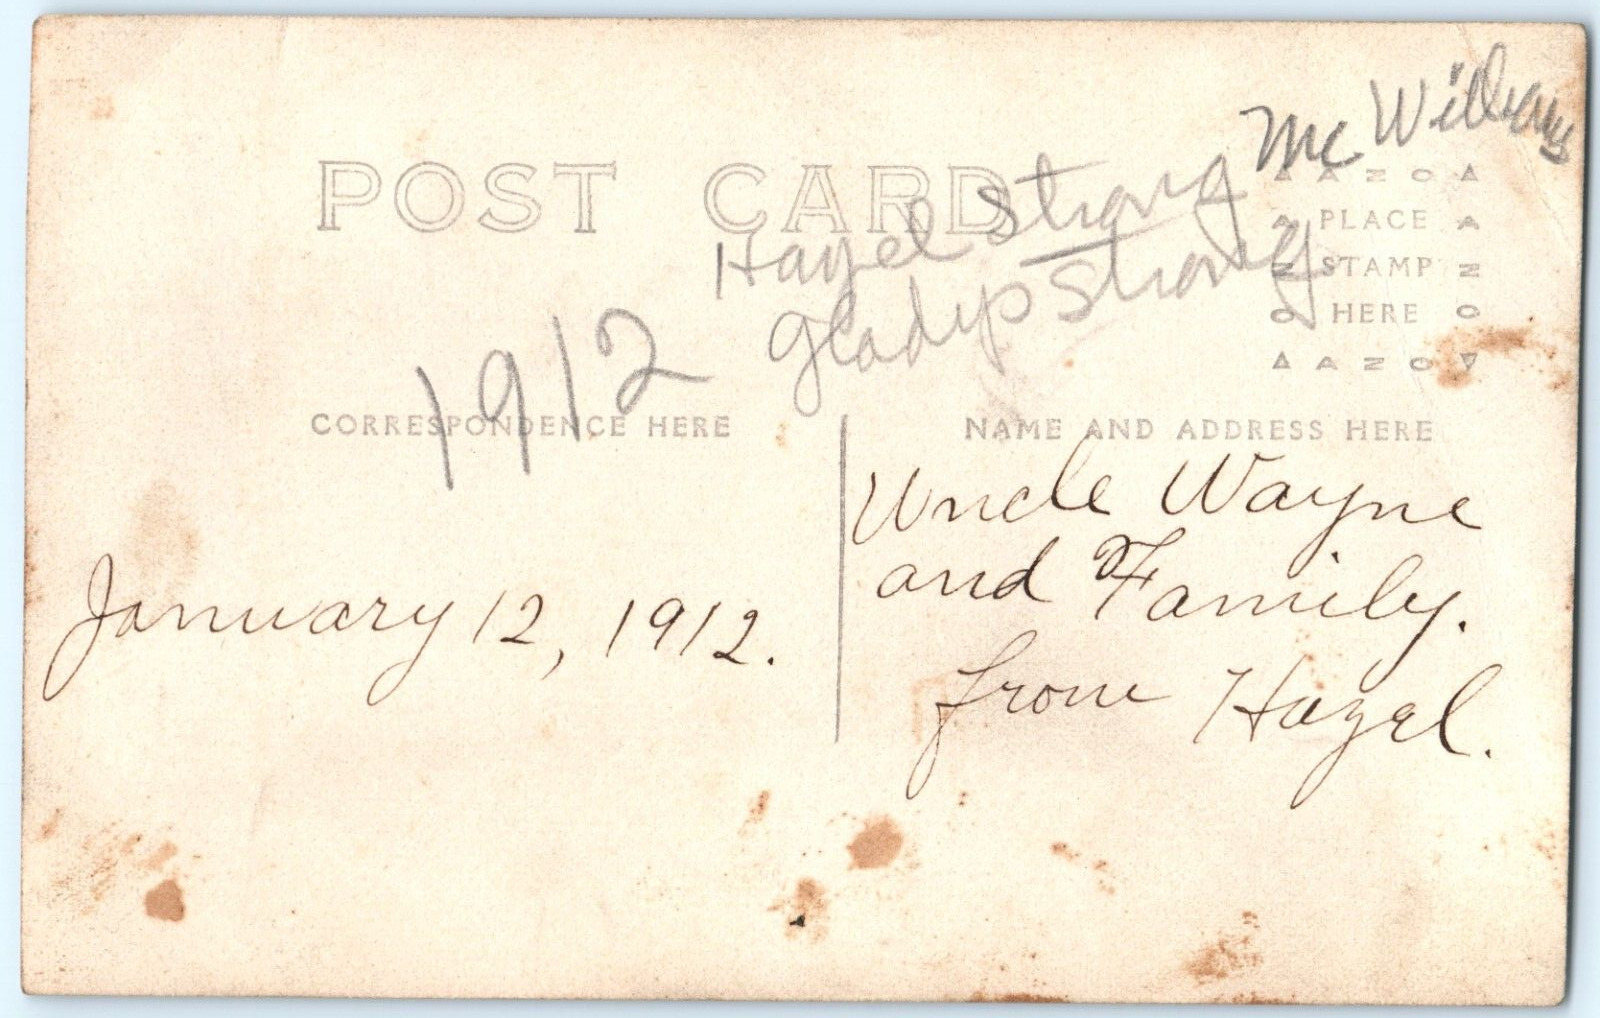 McWilliams
POST CARD
Hazel Strong
Gladys Strong
1912
AZO
PLACE
STAMP
HERE
AZO
AZO
AZO
CORRESPONDENCE HERE
NAME AND ADDRESS HERE
January 12, 1912.
Uncle Wayne
and Family.
from Hazel.